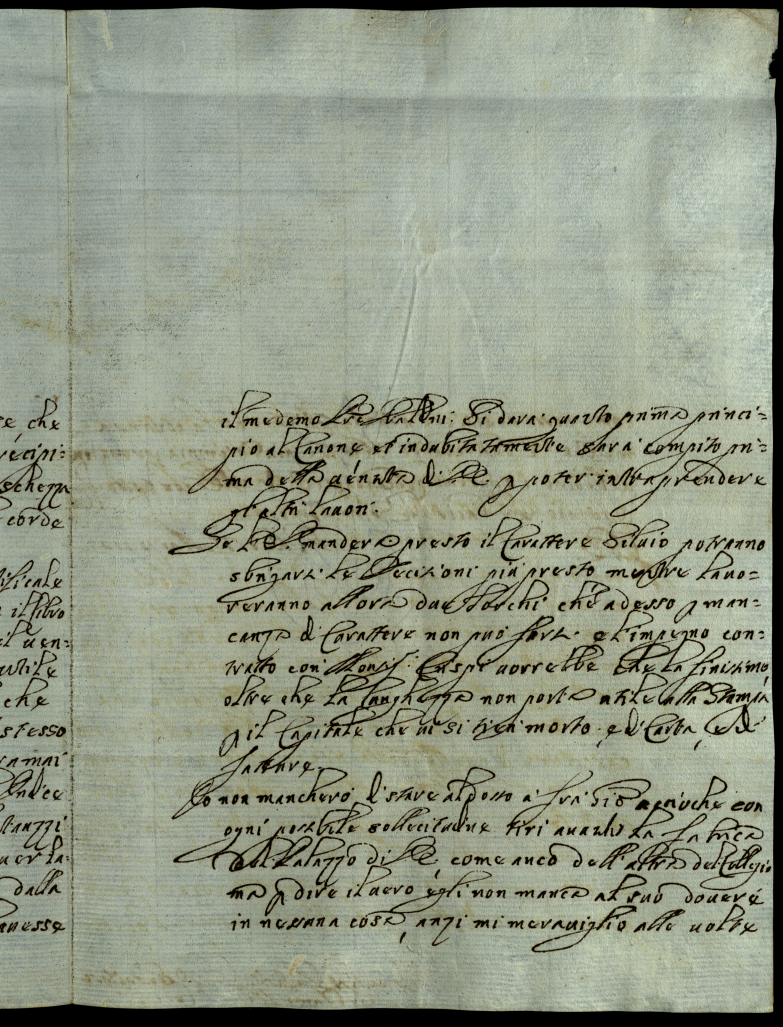 se, che
recipi:
schezza
corde
tificale
il libro
il uen-
utile
che
stesso
ramai
stanzzi
uer la-
dalla
hauesse
il medemo tre Si darà quanto prima princi-
pio al Canone et indubitatamente sarà compito pri-
ma della uenuta di p poter intraprendere
gl'altri lauori.
Se manderà presto il Carattere Siluio potranno
sbrigarsi le Decisioni più presto mentre lauo-
reranno allora due Torchi che adesso p man-
canza di Carattere non può farsi e l'impegno con-
tratto con Monsig. Crispi uorrebbe che la finissimo
oltre che la lunghezza non porta utile alla Stampa
p il Capitale che ui si tien morto e di Carta, e di
fatture.
Io non mancherò di stare al posto a frà acciochè con
ogni possibile sollecitudine tiri auanti la fabrica
del Palazzo di come anco dell'altra del Collegio
ma p dire il uero egli non manca al suo douere
in nessuna cosa, anzi mi merauiglio alle uolte